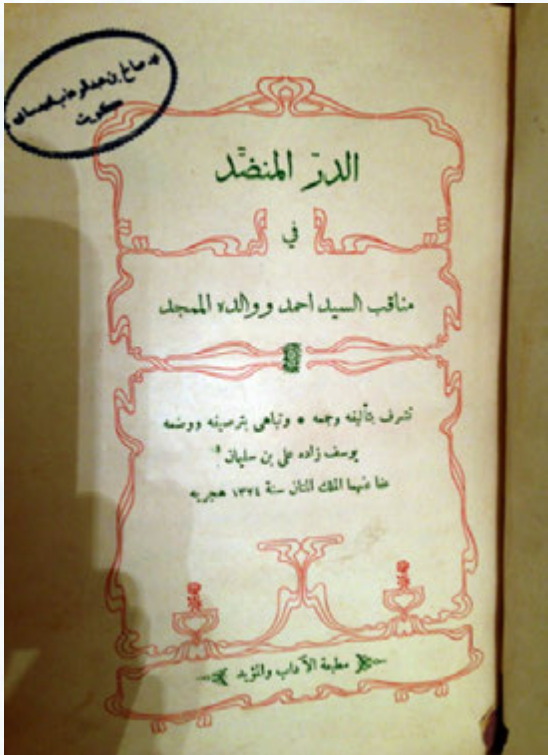 كويت
الدرّ المنضّد
في
مناقب السيد احمد ووالده الممجد
تشرف بتأليفه وجمعه * وتباهى بترصيفه ووضعه
يوسف زاده علي بن سليمان
عفا عنهما الملك المنان سنة ١٣٢٤ هجريه
مطبعة الآداب والمؤيد